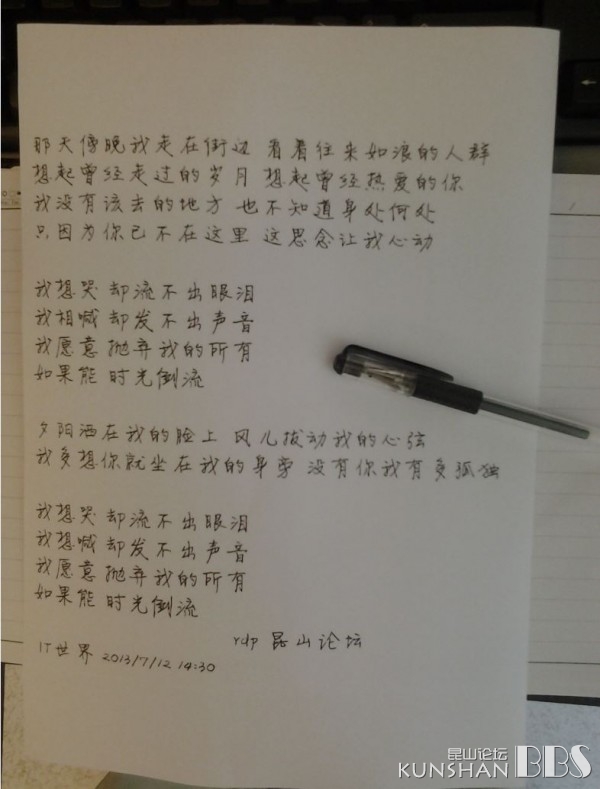 那天傍晚我走在街边 看着往来如浪的人群
想起曾经走过的岁月 想起曾经热爱的你
我没有该去的地方 也不知道身处何处
只因为你已不在这里 这思念让我心动
我想哭却流不出眼泪
我相喊却发不出声音
我愿意抛弃我的所有
如果能时光倒流
夕阳洒在我的脸上 风儿拔动我的心弦
我多想你就坐在我的身旁 没有你我有多孤独
我想哭却流不出眼泪
我想喊却发不出声音
我愿意抛弃我的所有
如果能时光倒流
rdp 昆山论坛
IT世界 2013/7/12 14:30
昆山论坛
KUNSHAN BBS